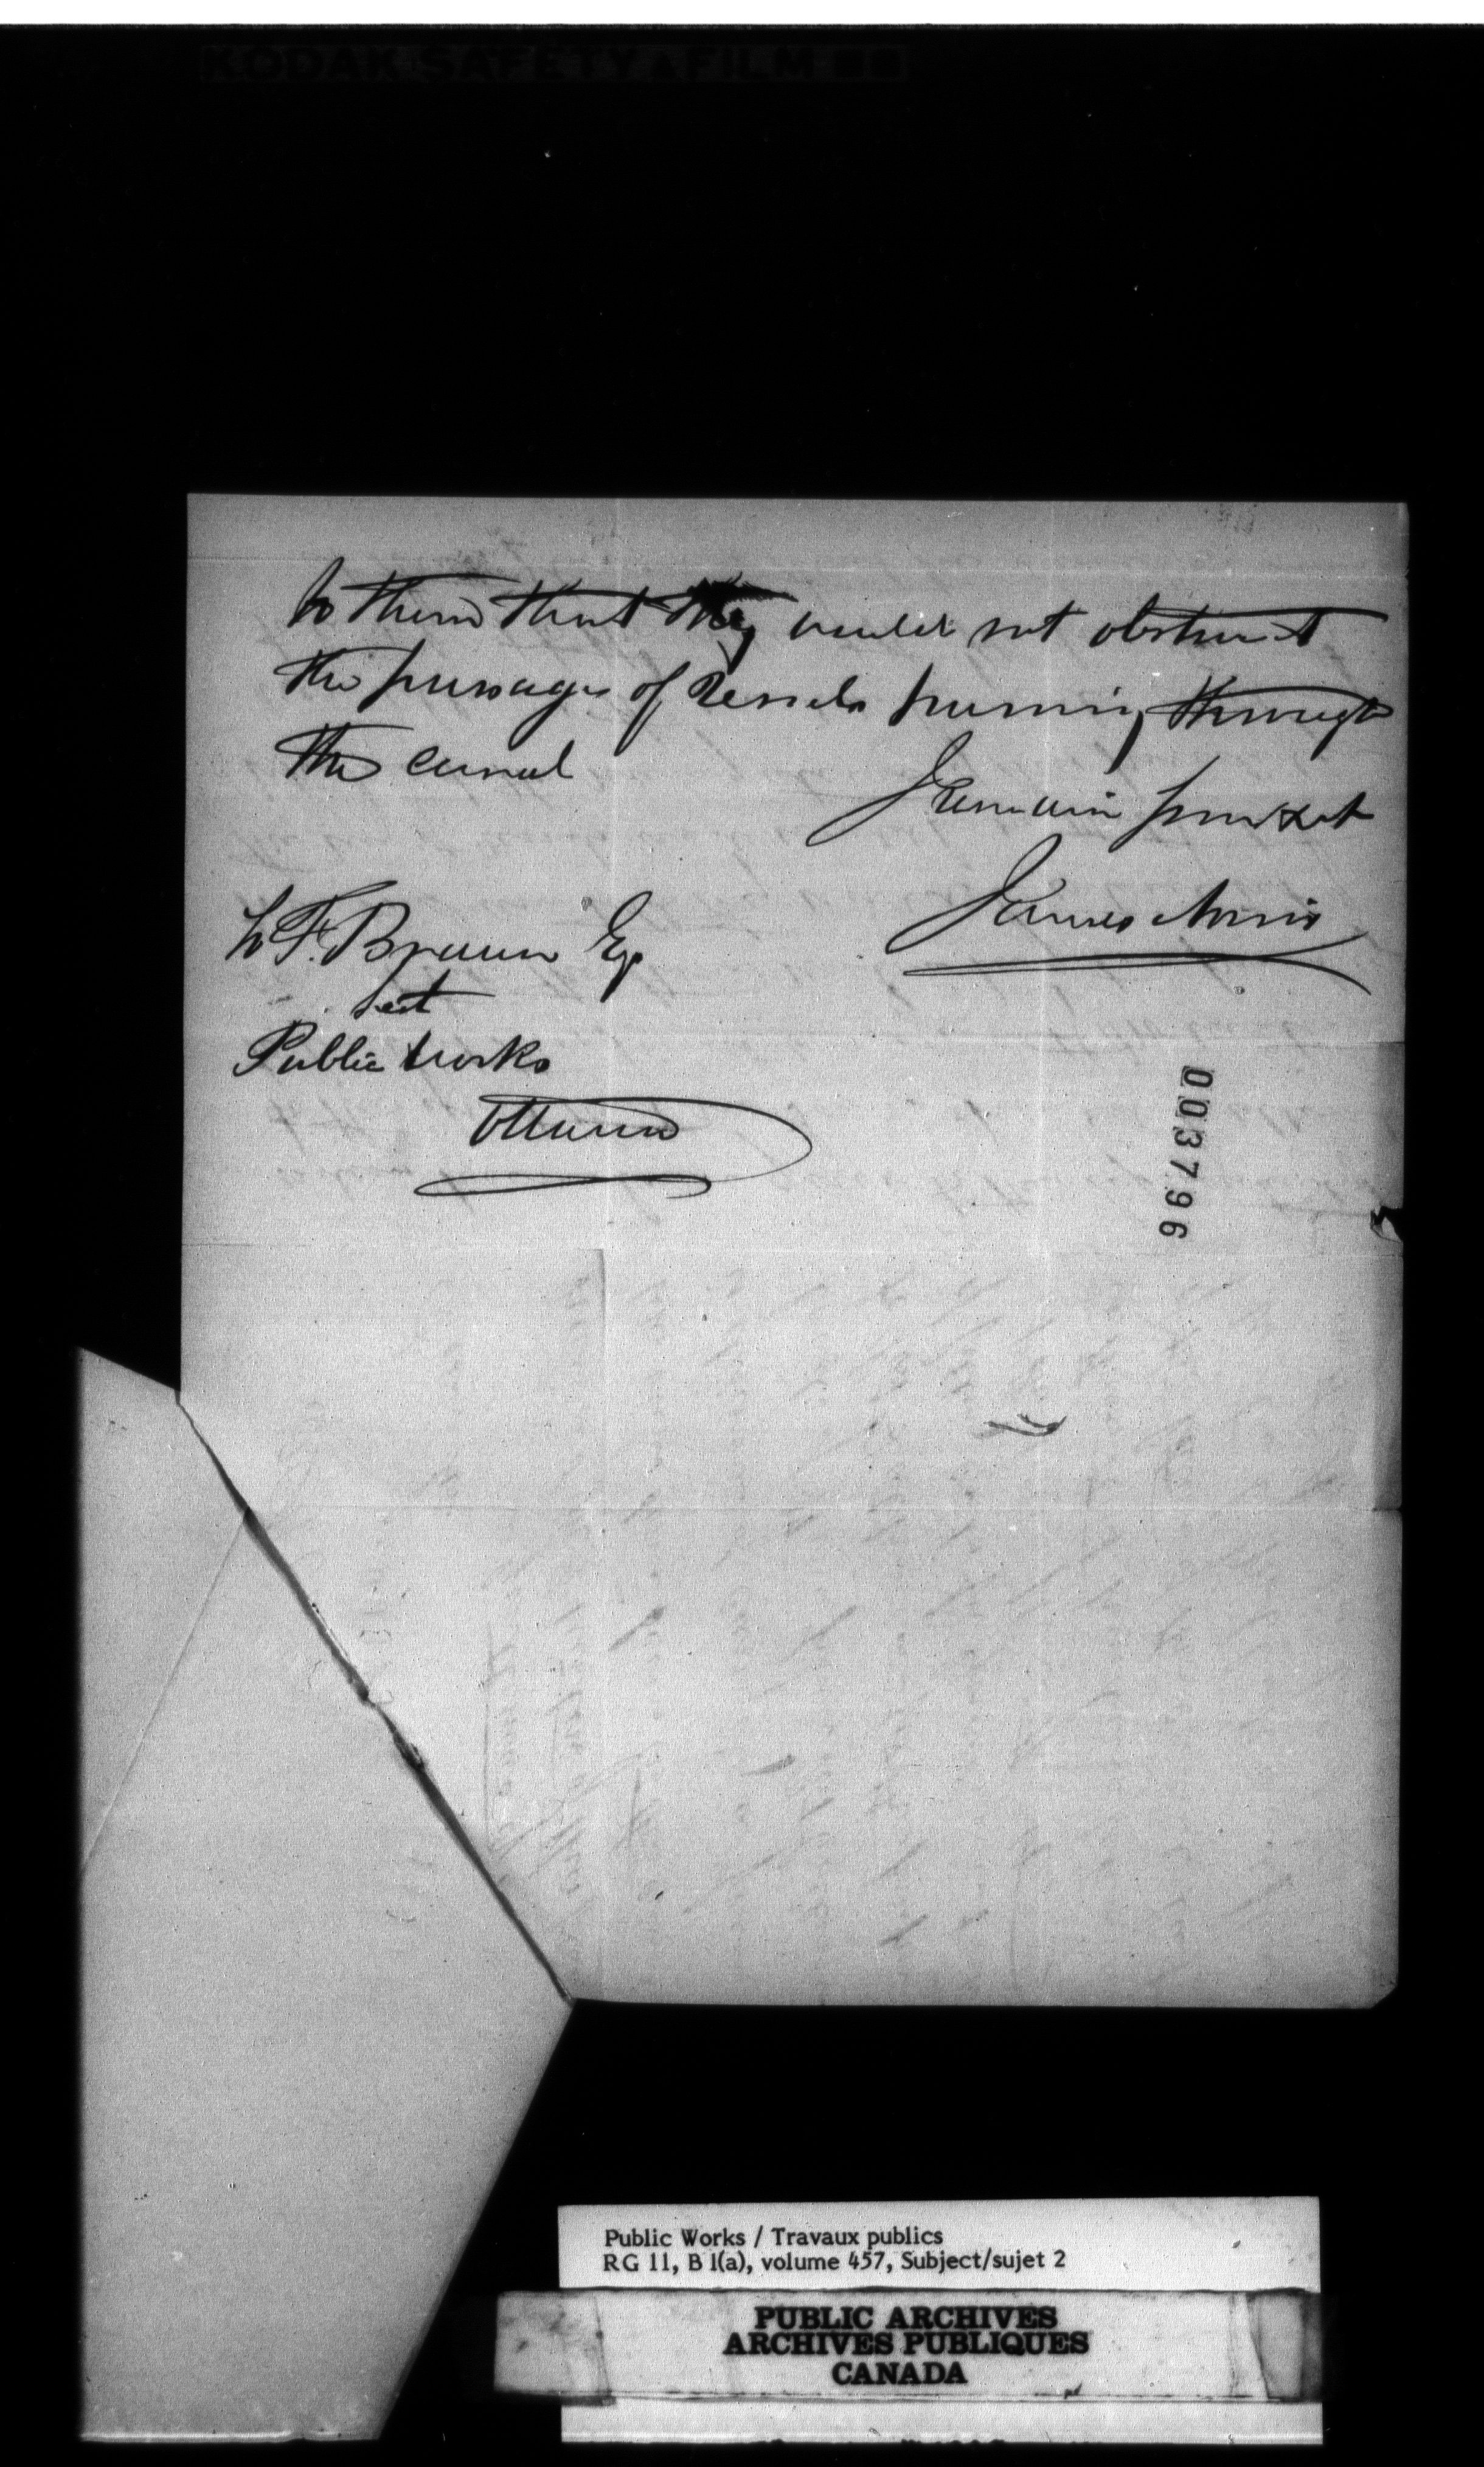 KODAK SAFETY FILM
to them that they would not obstruct
the passage of Vessels passing through
the canal
I remain
James Norris
to F. Braun Esq
Sect
Public Works
Ottawa
003796
Public Works / Travaux publics
RG 11, B 1(a), volume 457, Subject/sujet 2
PUBLIC ARCHIVES
ARCHIVES PUBLIQUES
CANADA